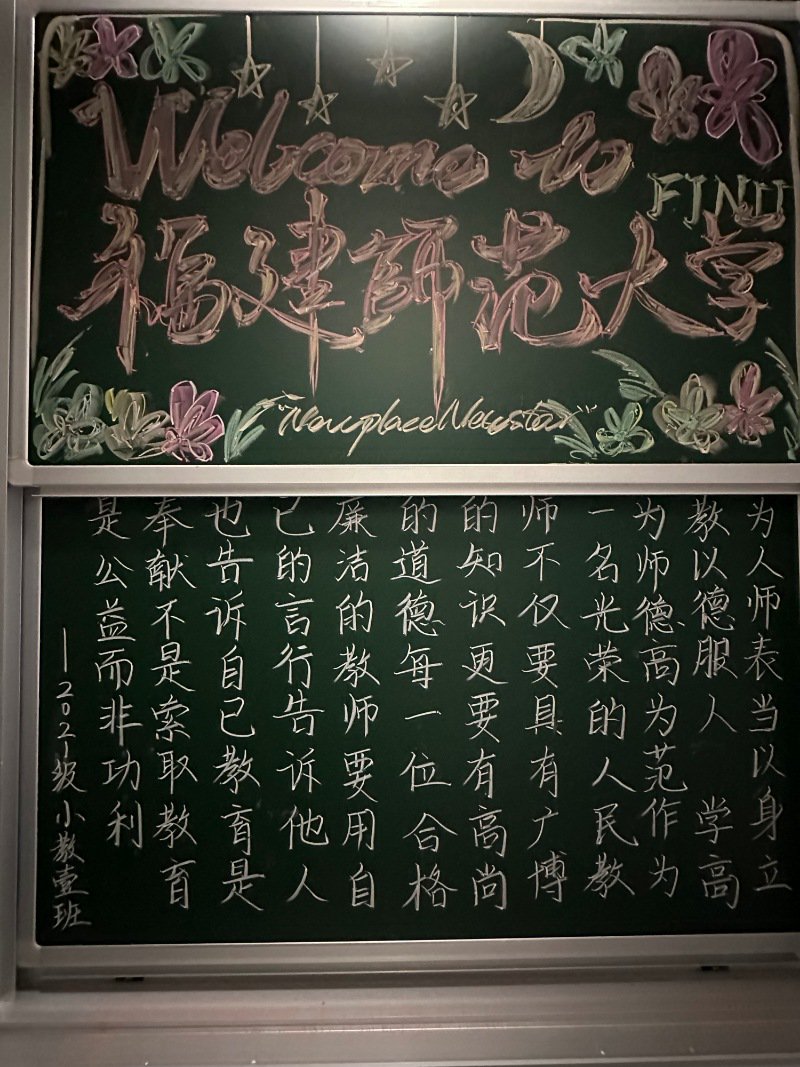 Welcome to
FJNU
福建師范大学
"New place New star"
为人师表当以身立
教以德服人 学高
为师德高为范作为
一名光荣的人民教
师不仅要具有广博
的知识更要有高尚
的道德每一位合格
廉洁的教师要用自
己的言行告诉他人
也告诉自己教育是
奉献不是索取教育
是公益而非功利
—2021级小教壹班